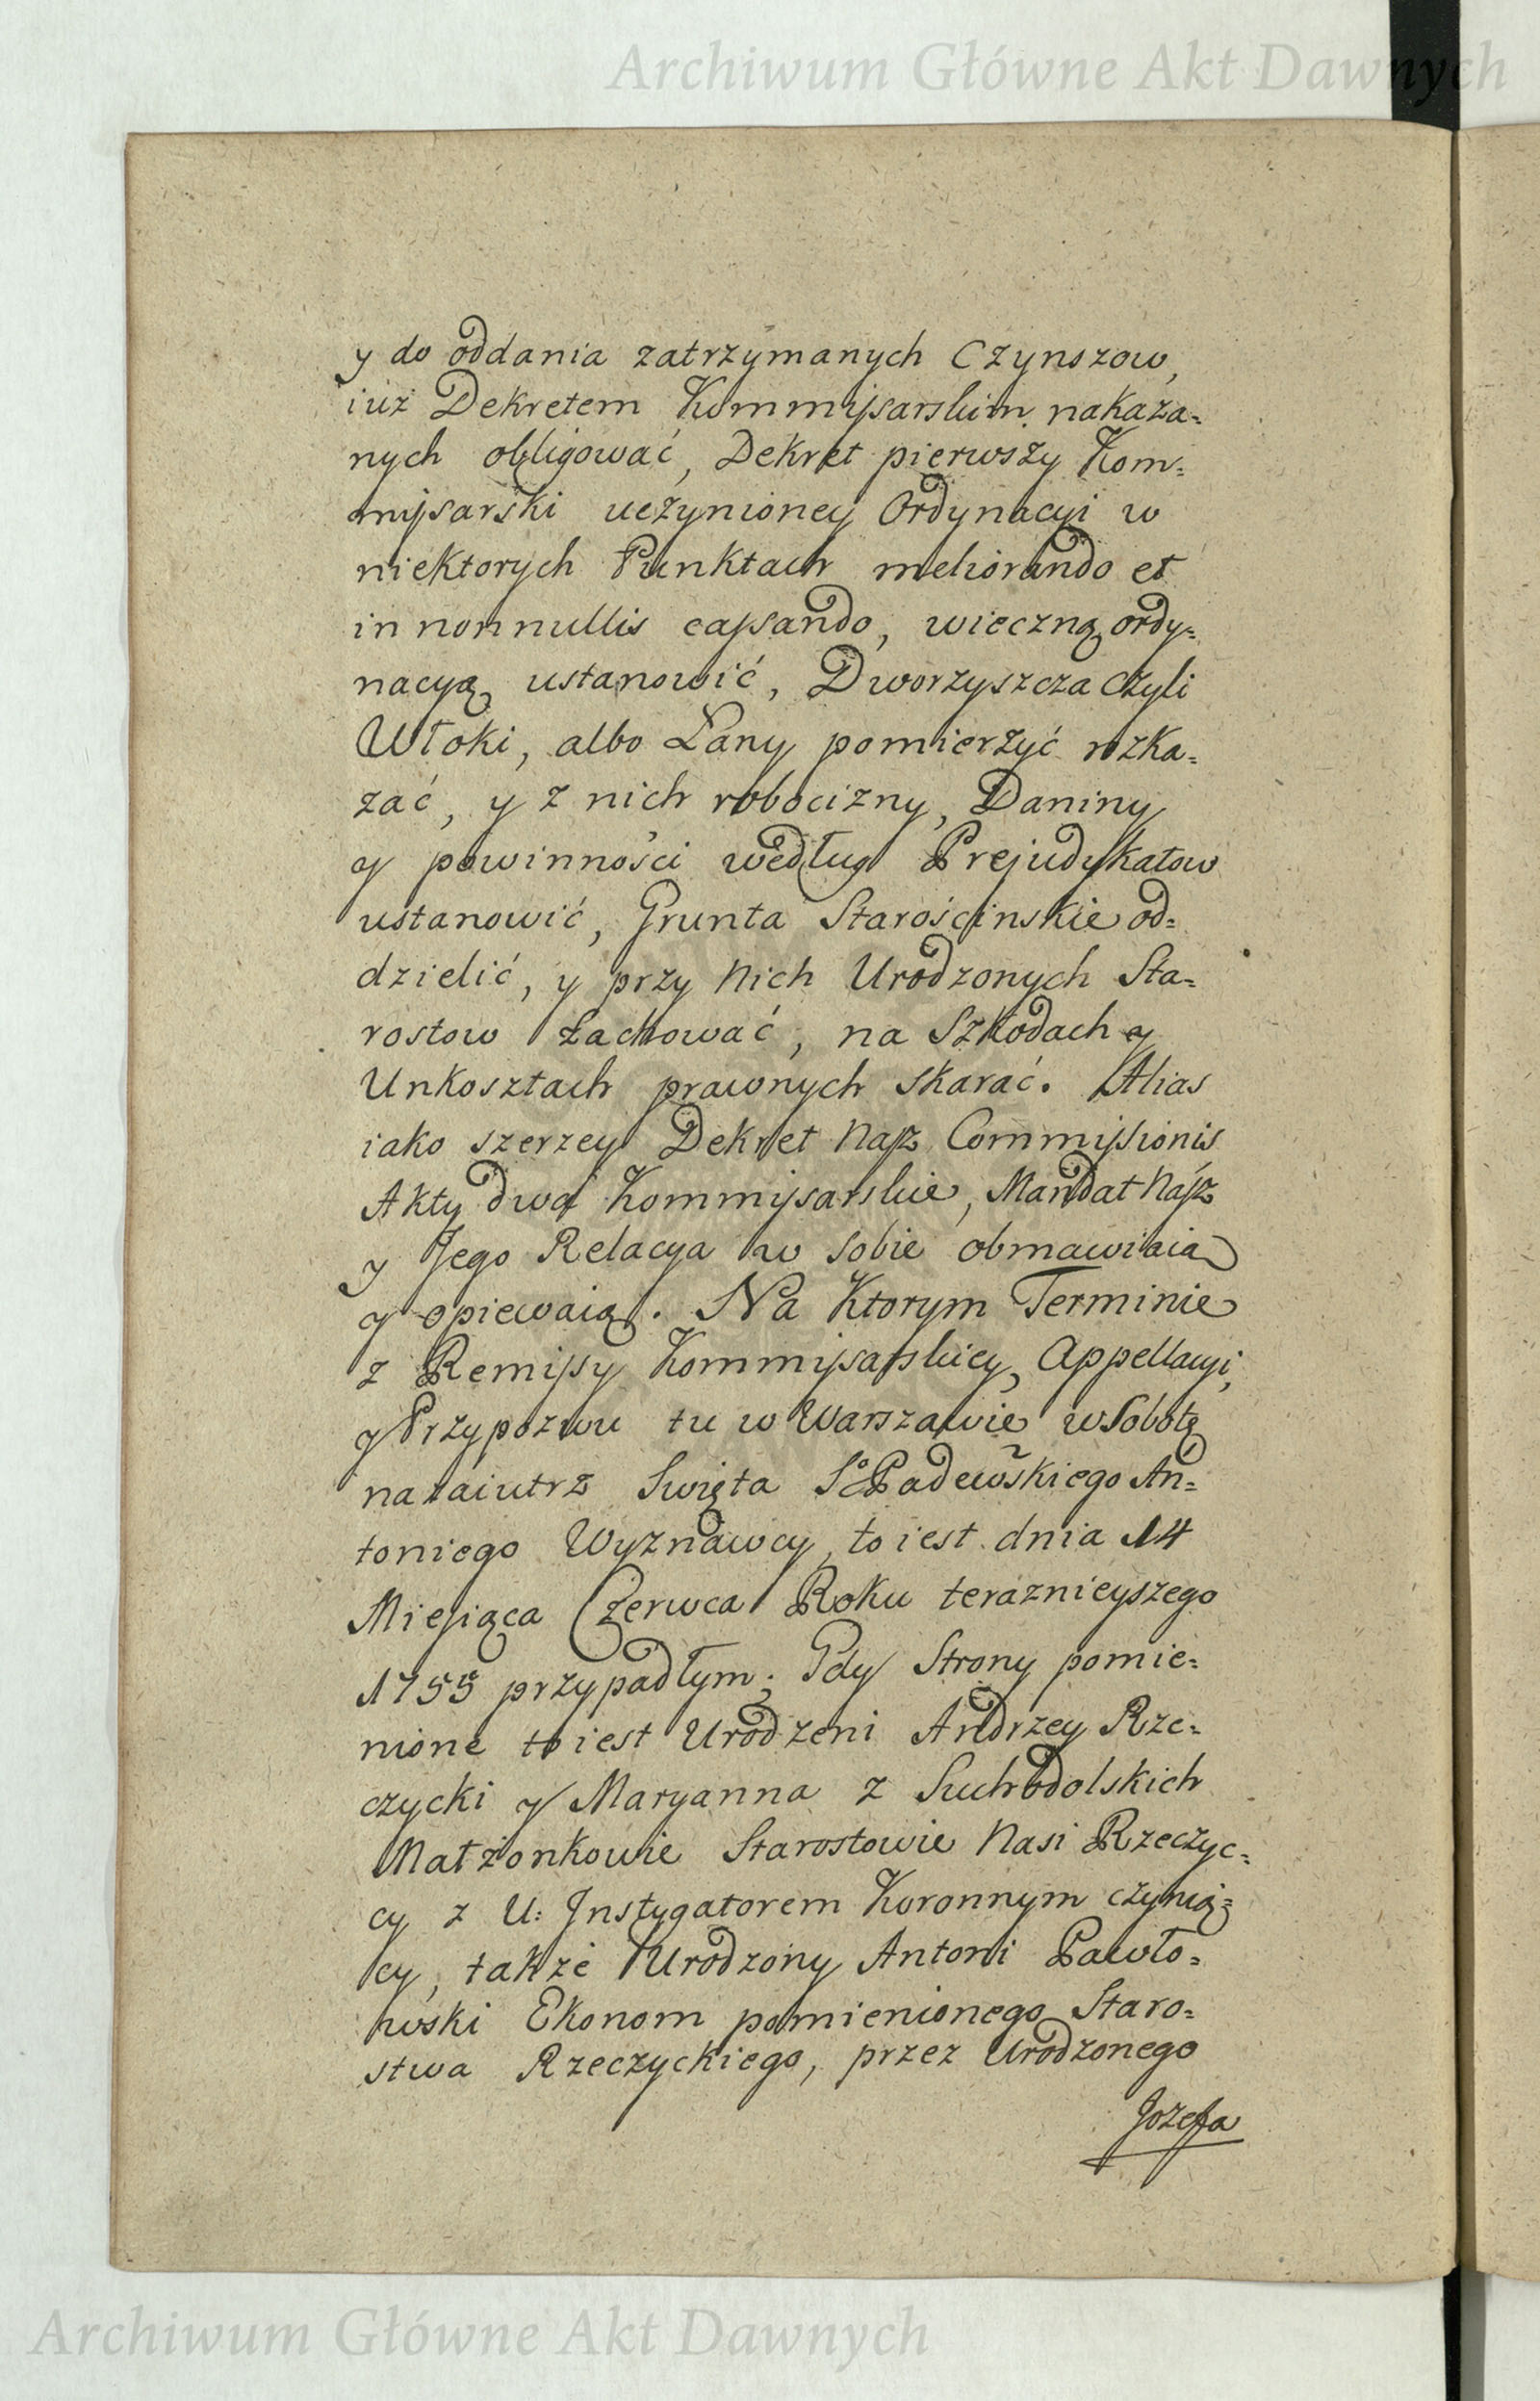 Archiwum Główne Akt Dawnych
y do oddania zatrzymanych Czynszow,
iuż Dekretem Kommissarskim nakaza=
nych obligować, Dekret pierwszy Kom=
missarski uczynioney Ordynacyi w
niektorych Punktach meliorando et
in nonnullis cassando, wieczną ordy=
nacyą ustanowić, Dworzyszcza czyli
Włoki, albo Łany pomierzyć rozka=
zać, y z nich robocizny, Daniny
y powinności według Prejudykatow
ustanowić, Grunta Starościnskie od=
dzielić, y przy nich Urodzonych Sta=
rostow zachować, na Szkodach y
Unkosztach prawnych skarać. Alias
iako szerzey Dekret Nasz Commissionis
Akty dwa Kommissarskie, Mandat Nasz
y Jego Relacya w sobie obmawiaią
y opiewaią. Na Ktorym Terminie
z Remissy Kommissarskiey, Appellacyi,
y Przypozwu tu w Warszawie w Sobotę
nazaiutrz Swięta So Padewskiego An=
toniego Wyznawcy, to iest dnia 14
Miesiąca Czerwca Roku teraznieyszego
1755 przypadłym; Gdy Strony pomie=
nione to iest Urodzeni Andrzey Rze=
czycki y Maryanna z Suchodolskich
Małżonkowie Starostowie Nasi Rzeczyc=
cy z U: Instygatorem Koronnym czynią=
cy, także Urodzony Antoni Pawło=
wski Ekonom pomienionego Staro=
stwa Rzeczyckiego, przez Urodzonego
Jozefa
Archiwum Główne Akt Dawnych